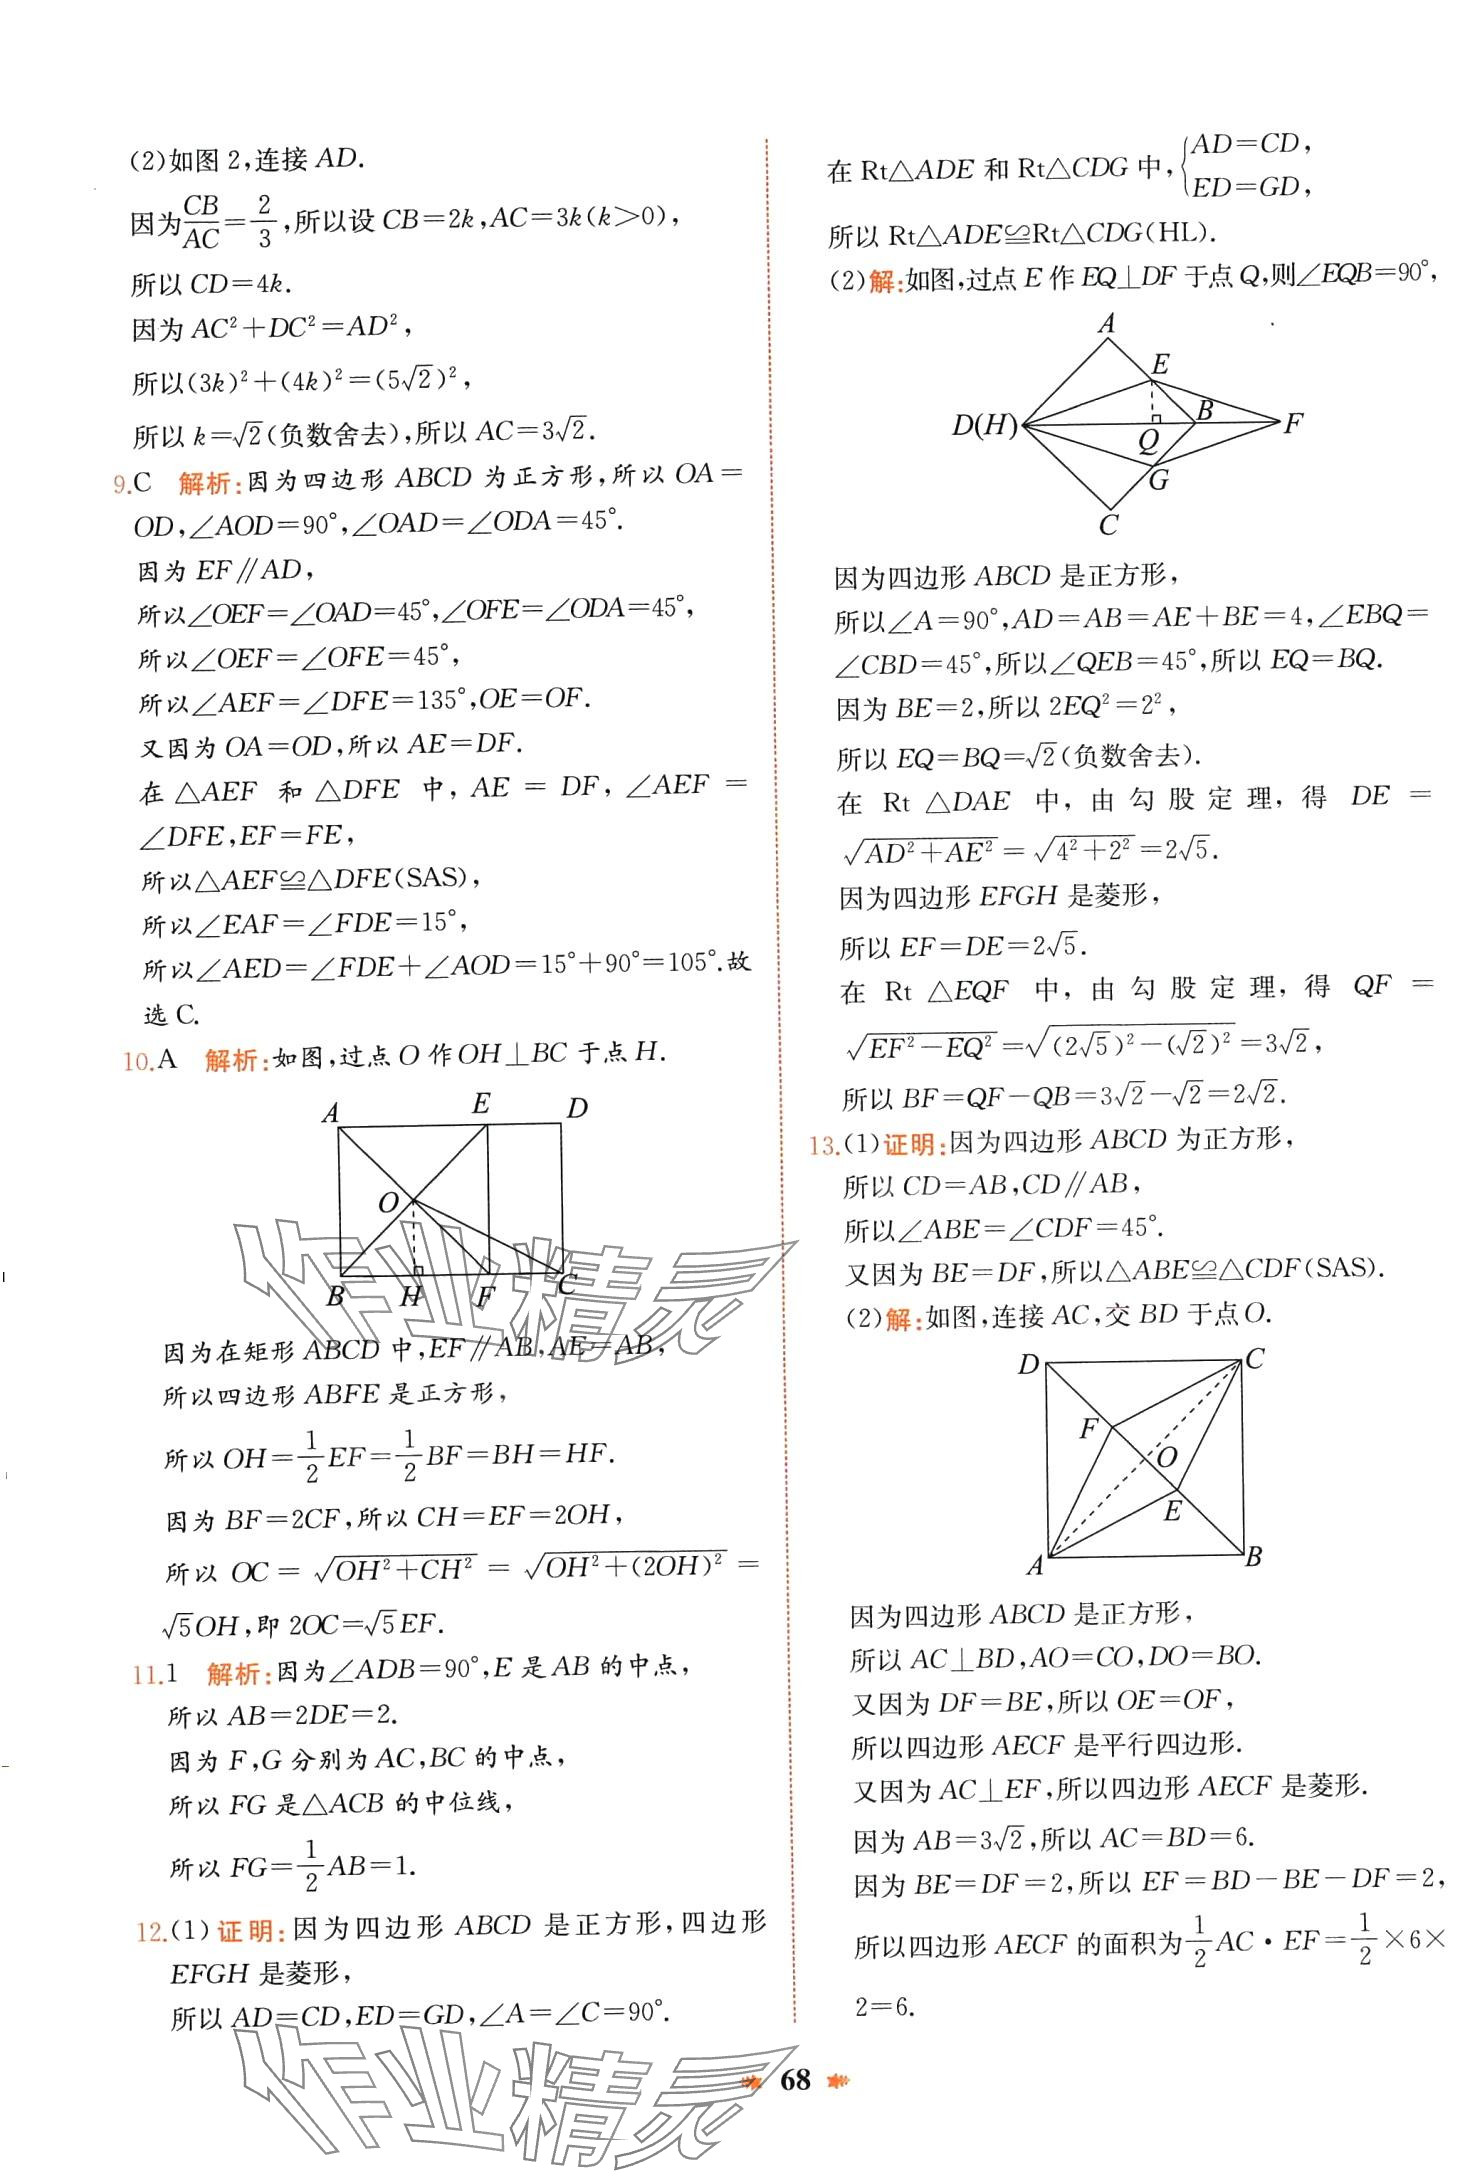 (2)如图2,连接AD.
因为CB/AC=2/3,所以设CB=2k,AC=3k(k>0),
所以CD=4k.
因为AC²+DC²=AD²,
所以(3k)²+(4k)²=(5√2)²,
所以k=√2(负数舍去),所以AC=3√2.
9.C 解析:因为四边形ABCD为正方形,所以OA=
OD,∠AOD=90°,∠OAD=∠ODA=45°.
因为EF∥AD,
所以∠OEF=∠OAD=45°,∠OFE=∠ODA=45°,
所以∠OEF=∠OFE=45°,
所以∠AEF=∠DFE=135°,OE=OF.
又因为OA=OD,所以AE=DF.
在△AEF和△DFE中,AE=DF,∠AEF=
∠DFE,EF=FE,
所以△AEF≌△DFE(SAS),
所以∠EAF=∠FDE=15°,
所以∠AED=∠FDE+∠AOD=15°+90°=105°.故
选C.
10.A 解析:如图,过点O作OH⊥BC于点H.
A E D
O
B H F C
因为在矩形ABCD中,EF∥AB,AE=AB,
所以四边形ABFE是正方形,
所以OH=1/2EF=1/2BF=BH=HF.
因为BF=2CF,所以CH=EF=2OH,
所以OC=√(OH²+CH²)=√(OH²+(2OH)²)=
√5OH,即2OC=√5EF.
11.1 解析:因为∠ADB=90°,E是AB的中点,
所以AB=2DE=2.
因为F,G分别为AC,BC的中点,
所以FG是△ACB的中位线,
所以FG=1/2AB=1.
12.(1)证明:因为四边形ABCD是正方形,四边形
EFGH是菱形,
所以AD=CD,ED=GD,∠A=∠C=90°.
在Rt△ADE和Rt△CDG中,{AD=CD,
ED=GD,
所以Rt△ADE≌Rt△CDG(HL).
(2)解:如图,过点E作EQ⊥DF于点Q,则∠EQB=90°,
A
E
D(H) Q B F
G
C
因为四边形ABCD是正方形,
所以∠A=90°,AD=AB=AE+BE=4,∠EBQ=
∠CBD=45°,所以∠QEB=45°,所以EQ=BQ.
因为BE=2,所以2EQ²=2²,
所以EQ=BQ=√2(负数舍去).
在Rt△DAE中,由勾股定理,得DE=
√(AD²+AE²)=√(4²+2²)=2√5.
因为四边形EFGH是菱形,
所以EF=DE=2√5.
在Rt△EQF中,由勾股定理,得QF=
√(EF²-EQ²)=√((2√5)²-(√2)²)=3√2,
所以BF=QF-QB=3√2-√2=2√2.
13.(1)证明:因为四边形ABCD为正方形,
所以CD=AB,CD∥AB,
所以∠ABE=∠CDF=45°.
又因为BE=DF,所以△ABE≌△CDF(SAS).
(2)解:如图,连接AC,交BD于点O.
D C
F
O
E
A B
因为四边形ABCD是正方形,
所以AC⊥BD,AO=CO,DO=BO.
又因为DF=BE,所以OE=OF,
所以四边形AECF是平行四边形.
又因为AC⊥EF,所以四边形AECF是菱形.
因为AB=3√2,所以AC=BD=6.
因为BE=DF=2,所以EF=BD-BE-DF=2,
所以四边形AECF的面积为1/2AC·EF=1/2×6×
2=6.
68
作业精灵
作业精灵